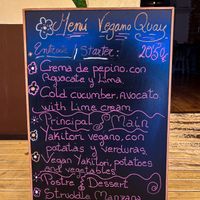 Menú Vegano Quay
Entrante / Starter:
Crema de pepino, con
Aguacate y Lima
Cold cucumber, Avocato
with Lime cream
Principal Main
Yakitori vegano, con
patatas y verduras
Vegan Yakitori, potatoes
and vegetables
Postre Dessert
Strudle Manzana